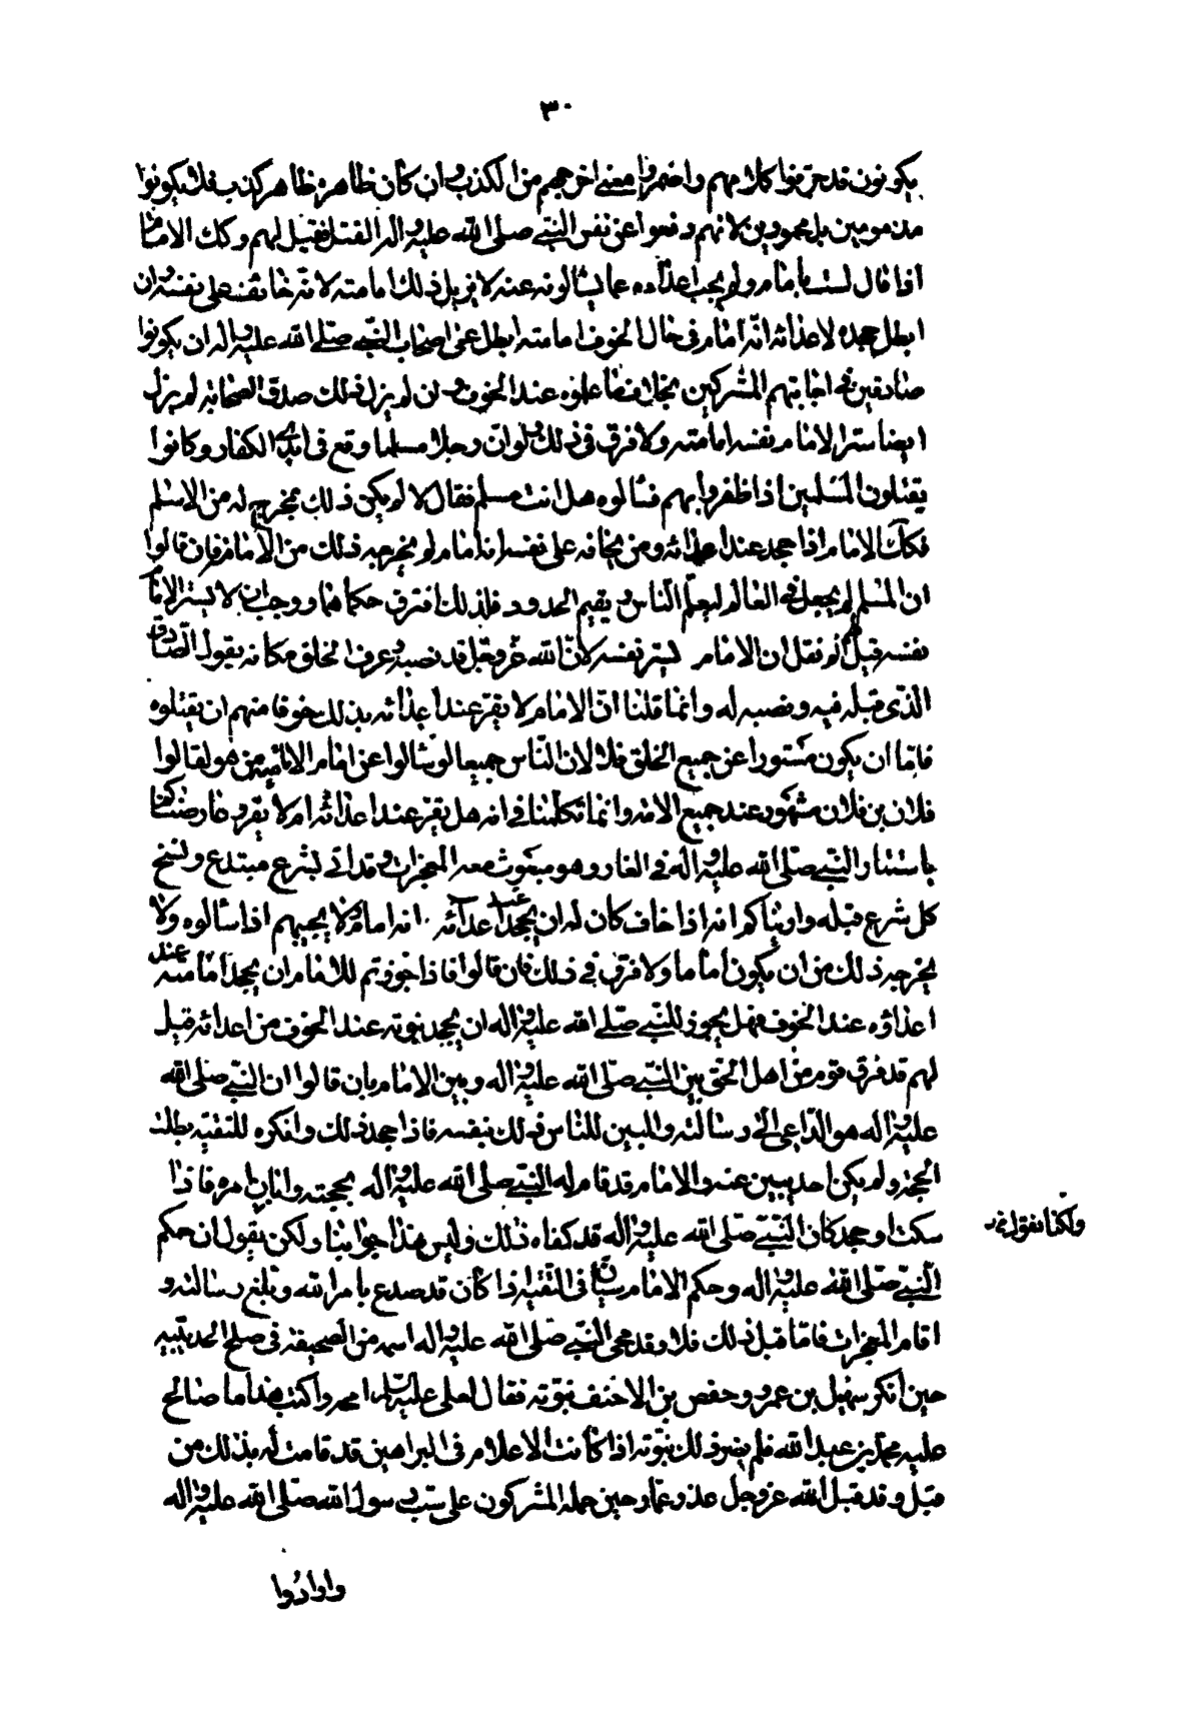 ٣٠
يكونون قد حرفوا كلامهم واضمروا معنى اخرجهم من الكذب وان كان ظاهره ظاهر كذب فلا يكونوا
مذمومين بل محمودين لانهم دفعوا عن نفس النبي صلى الله عليه واله القتل فقيل لهم وكك الامام
اذا قال لست بامام ولم يجب اعداءه عما يسألونه عنه لا يزيل ذلك امامته لانه خائف على نفسه وان
ابطل جحده لاعدائه انه امام في حال الخوف امامته ابطل عن اصحاب النبي صلى الله عليه واله ان يكونوا
صادقين في اجابتهم المشركين بخلاف ما علموه عند الخوف وان لم يزل ذلك صدق الصحابة لم يزل
ايضا ستر الامام نفسه امامته ولا فرق في ذلك ولو ان رجلا مسلما وقع في ايدي الكفار وكانوا
يقتلون المسلمين اذا ظفروا بهم فسألوه هل انت مسلم فقال لا لم يكن ذلك بمخرج له من الاسلام
فكك الامام اذا جحد عند اعدائه ومن يخافه على نفسه انه امام لم يخرجه ذلك من الامامة فان قالوا
ان المسلم لم يجعل في العالم ليعلم الناس ويقيم الحدود فلذلك افترق حكماهما ووجب ان لا يستر الامام
نفسه قيل لهم لم نقل ان الامام يستر نفسه لان الله عز وجل قد نصبه وعرف الخلق مكانه بقول الصادق
الذي قبله فيه ونصبه له وانما قلنا ان الامام لا يقر عند اعدائه بذلك خوفا منهم ان يقتلوه
فاما ان يكون مستورا عن جميع الخلق فلا لان الناس جميعا لو سألوا عن امام الامامية من هو لقالوا
فلان بن فلان مشهور عند جميع الامة وانما تكلمنا في انه هل يقر عند اعدائه ام لا يقر وعارضناكم
باستتار النبي صلى الله عليه واله في الغار وهو مبعوث معه المعجزات وقد اتى بشرع مبتدع ونسخ
كل شرع قبله واريناكم انه اذا خاف كان له ان يجحد عند اعدائه انه امام ولا يجيبهم اذا سألوه ولا
يخرجه ذلك من ان يكون اماما ولا فرق في ذلك فان قالوا فاذا جوزتم للامام ان يجحد امامته عند
اعدائه عند الخوف فهل يجوز للنبي صلى الله عليه واله ان يجحد نبوته عند الخوف من اعدائه قيل
لهم قد فرق قوم من اهل الحق بين النبي صلى الله عليه واله وبين الامام بان قالوا ان النبي صلى الله
عليه واله هو الداعي الى رسالته والمبين للناس ذلك بنفسه فاذا جحد ذلك وانكره للتقية بطلت
الحجة ولم يكن احد يبين عنه والامام قد قام له النبي صلى الله عليه واله بحجته وابان امره فاذا
سكت او جحد كان النبي صلى الله عليه واله قد كفاه ذلك وليس هذا جوابنا ولكن يقول ان حكم
ولكنا نقول انه
النبي صلى الله عليه واله وحكم الامام سيان في التقية اذا كان قد صدع بامر الله وبلغ رسالته و
اقام المعجزات فاما قبل ذلك فلا وقد محى النبي صلى الله عليه واله اسمه من الصحيفة في صلح الحديبية
حين انكر سهيل بن عمرو وحفص بن الاحنف نبوته فقال لعلي عليه السلام امحه واكتب هذا ما صالح
عليه محمد بن عبد الله فلم يضر ذلك نبوته اذا كانت الاعلام في البراهين قد قامت له بذلك من
قبل وقد قبل الله عز وجل عذر عمار حين حمله المشركون على سب رسول الله صلى الله عليه واله
وارادوا